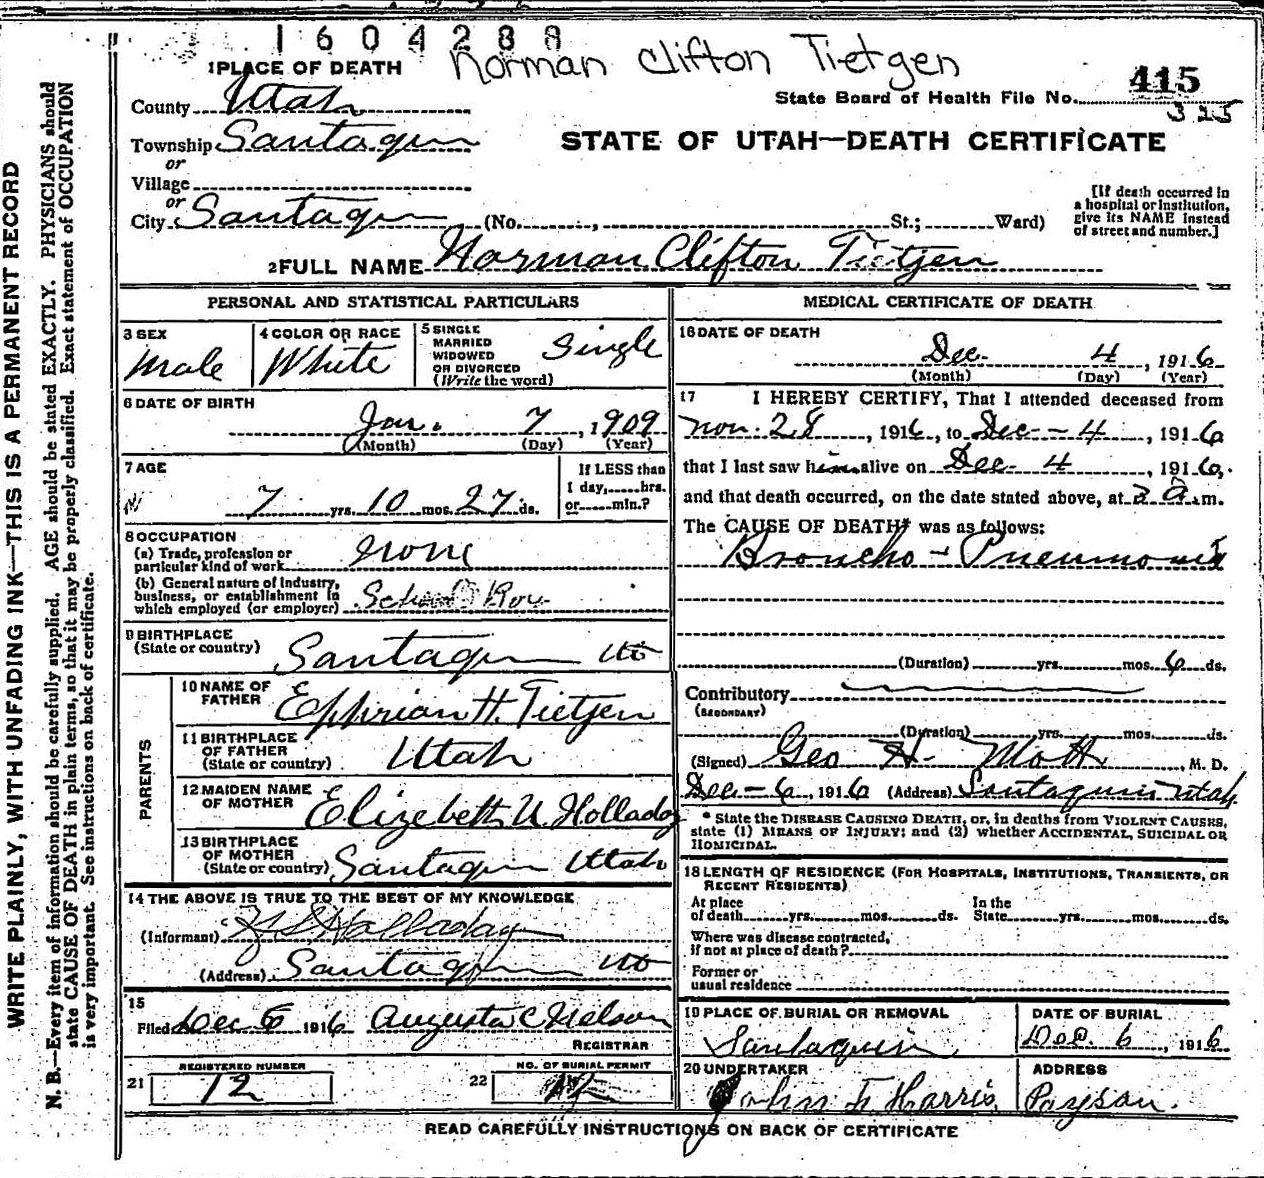 1604288
Norman Clifton Tietgen
1 PLACE OF DEATH
415
State Board of Health File No.
325
County Utah
Township Santaquin
STATE OF UTAH—DEATH CERTIFICATE
or
Village
or
City Santaquin (No. , St.; Ward)
[If death occurred in
a hospital or institution,
give its NAME instead
of street and number.]
2 FULL NAME Norman Clifton Tietjen
PERSONAL AND STATISTICAL PARTICULARS
3 SEX
Male
4 COLOR OR RACE
White
5 SINGLE
MARRIED
WIDOWED
OR DIVORCED
(Write the word)
Single
6 DATE OF BIRTH
Jan. 7, 1909
(Month) (Day) (Year)
7 AGE
7 yrs. 10 mos. 27 ds.
If LESS than
1 day, hrs.
or min.?
8 OCCUPATION
(a) Trade, profession or
particular kind of work None
(b) General nature of industry,
business, or establishment in
which employed (or employer) School Boy
9 BIRTHPLACE
(State or country) Santaquin Ut
PARENTS
10 NAME OF
FATHER Ephriam H. Tietjen
11 BIRTHPLACE
OF FATHER
(State or country) Utah
12 MAIDEN NAME
OF MOTHER Elizebeth U Holladay
13 BIRTHPLACE
OF MOTHER
(State or country) Santaquin Utah
14 THE ABOVE IS TRUE TO THE BEST OF MY KNOWLEDGE
(Informant) Holladay
(Address) Santaquin Ut
15
Filed Dec 6 1916 Augusta C Nelson
REGISTRAR
REGISTERED NUMBER
21 12
NO. OF BURIAL PERMIT
22 12
MEDICAL CERTIFICATE OF DEATH
16 DATE OF DEATH
Dec. 4, 1916
(Month) (Day) (Year)
17 I HEREBY CERTIFY, That I attended deceased from
Nov. 28, 1916, to Dec – 4, 1916
that I last saw him alive on Dec. 4, 1916,
and that death occurred, on the date stated above, at 2 a.m.
The CAUSE OF DEATH* was as follows:
Broncho – Pneumonia
(Duration) yrs. mos. 6 ds.
Contributory
(SECONDARY)
(Duration) yrs. mos. ds.
(Signed) Geo H. Mott, M. D.
Dec – 6, 1916 (Address) Santaquin Utah
* State the DISEASE CAUSING DEATH, or, in deaths from VIOLENT CAUSES,
state (1) MEANS OF INJURY; and (2) whether ACCIDENTAL, SUICIDAL OR
HOMICIDAL.
18 LENGTH OF RESIDENCE (FOR HOSPITALS, INSTITUTIONS, TRANSIENTS, OR
RECENT RESIDENTS)
At place
of death yrs. mos. ds.
In the
State yrs. mos. ds.
Where was disease contracted,
if not at place of death?
Former or
usual residence
19 PLACE OF BURIAL OR REMOVAL
Santaquin
DATE OF BURIAL
Dec. 6, 1916
20 UNDERTAKER
John F Harris
ADDRESS
Payson.
READ CAREFULLY INSTRUCTIONS ON BACK OF CERTIFICATE
WRITE PLAINLY, WITH UNFADING INK—THIS IS A PERMANENT RECORD
N. B.—Every item of information should be carefully supplied. AGE should be stated EXACTLY. PHYSICIANS should
state CAUSE OF DEATH in plain terms, so that it may be properly classified. Exact statement of OCCUPATION
is very important. See instructions on back of certificate.